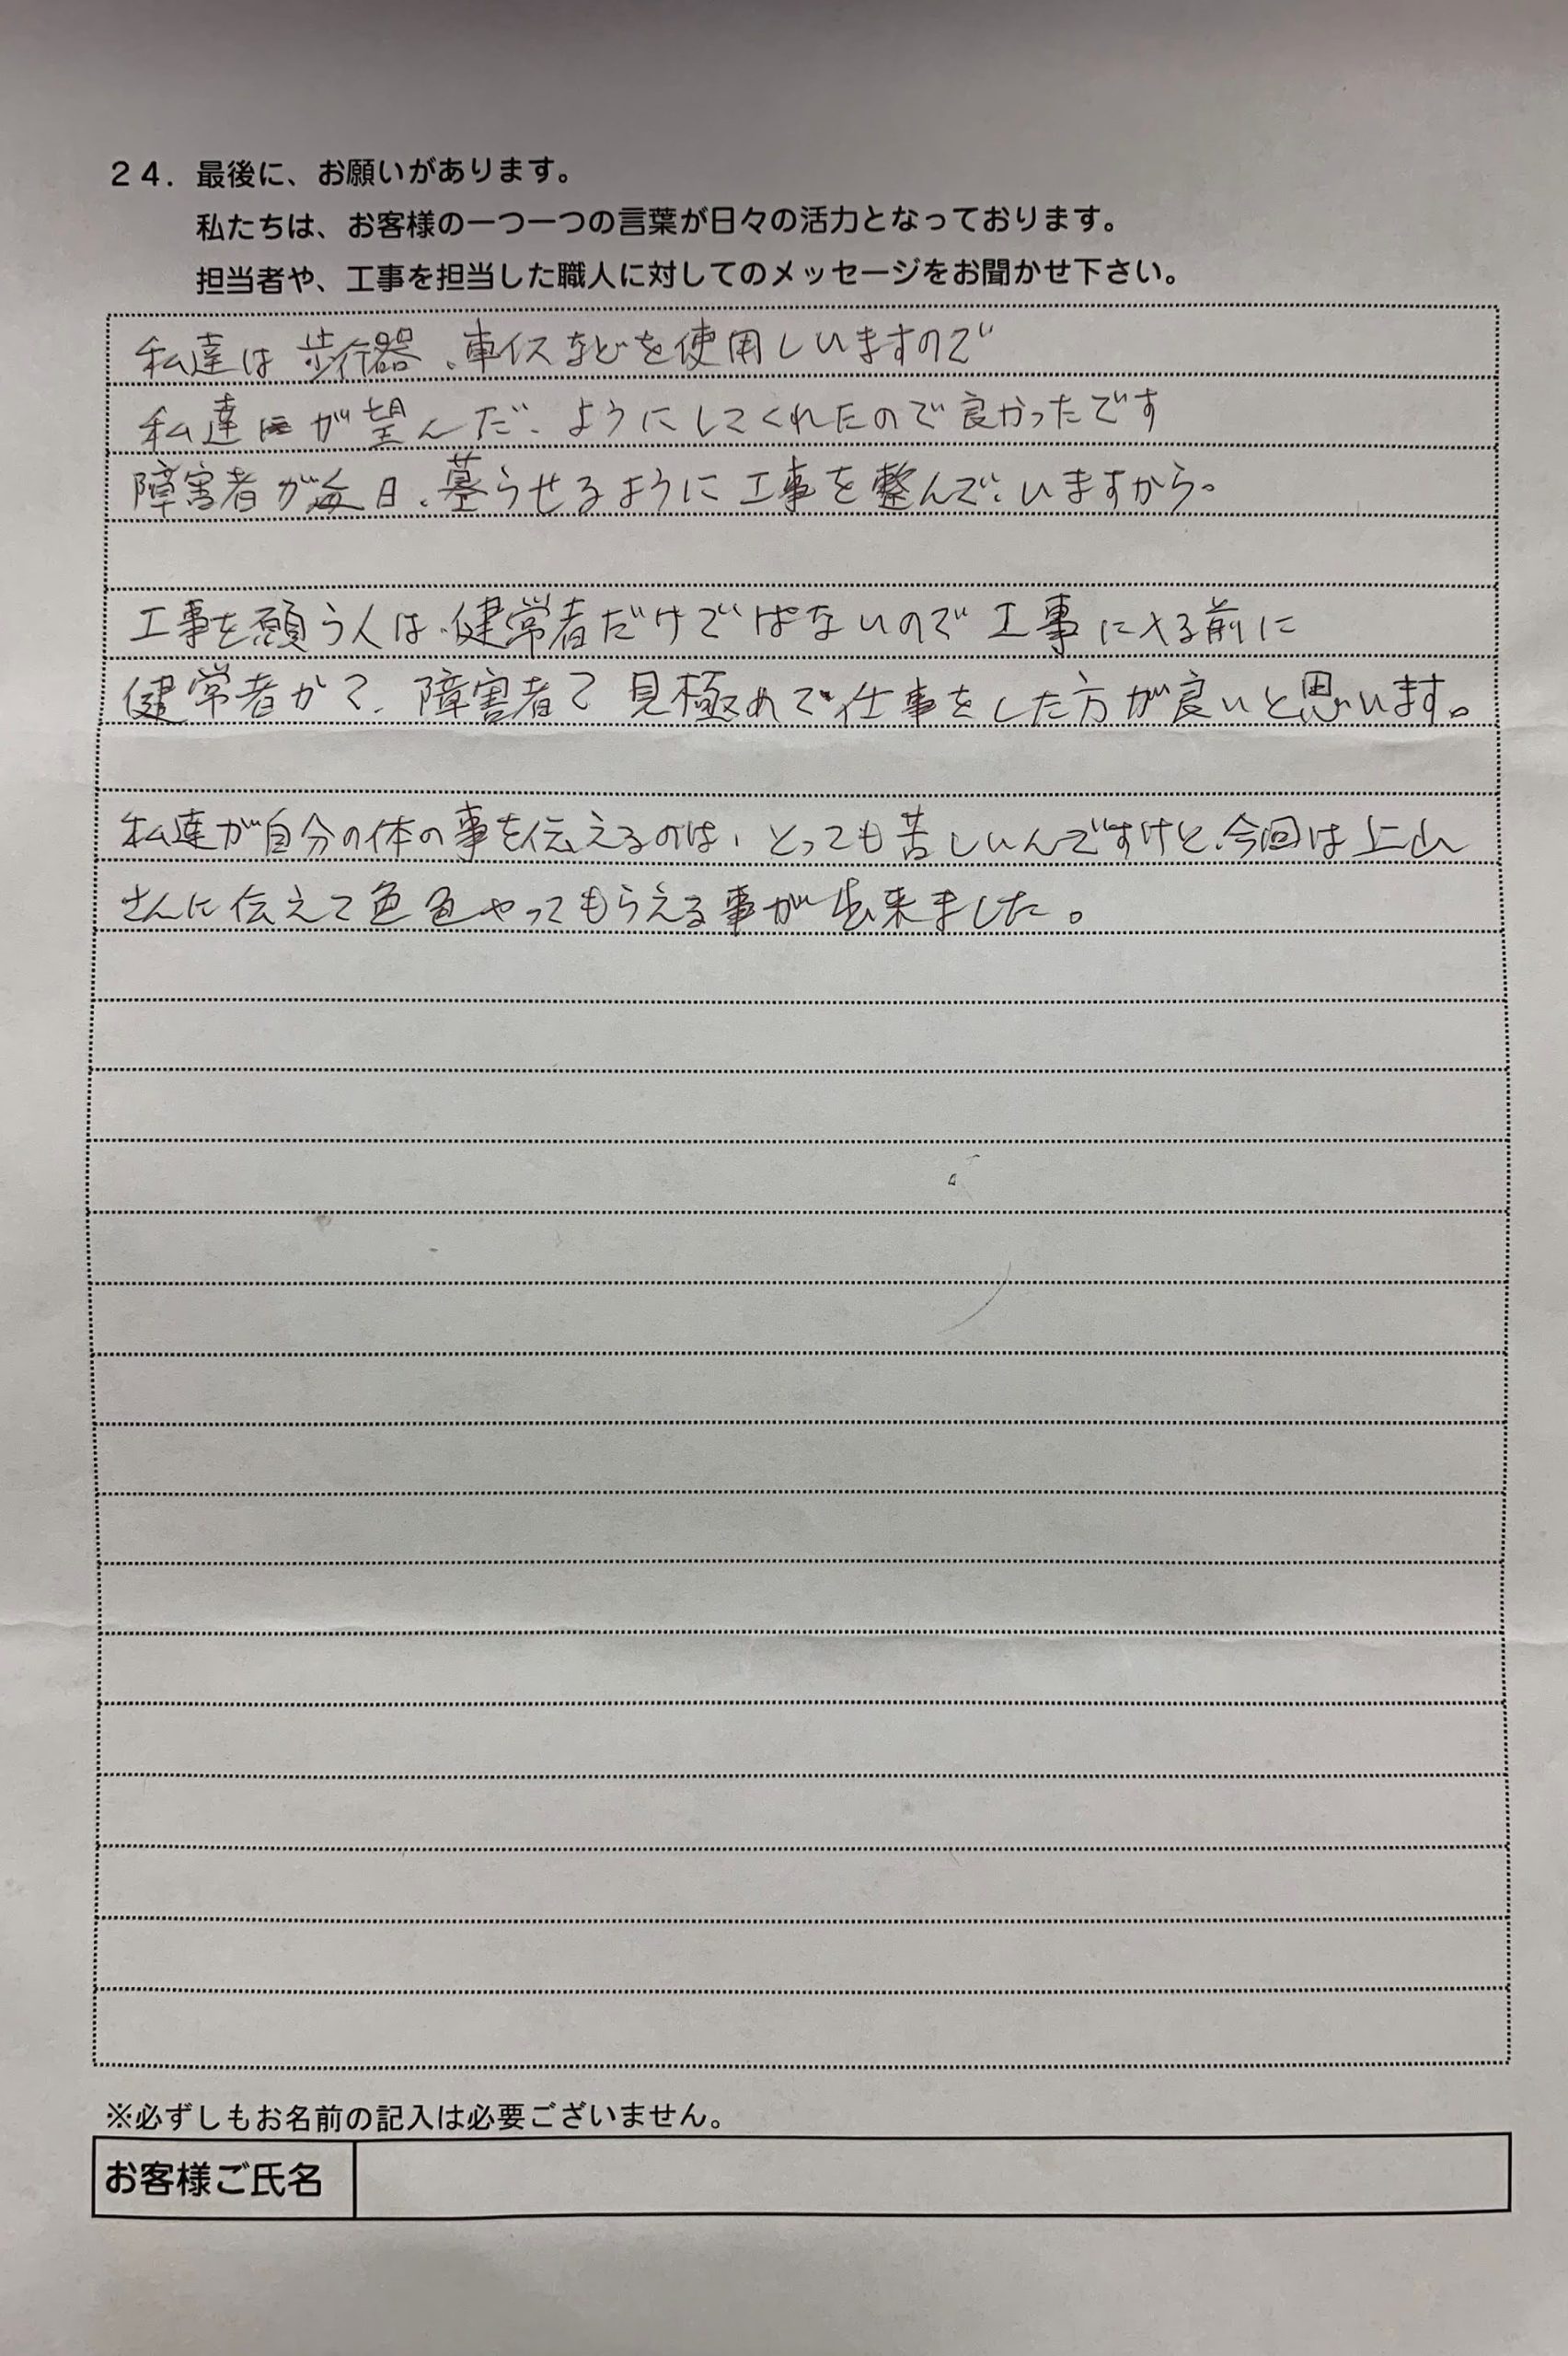 24. 最後に、お願いがあります。
私たちは、お客様の一つ一つの言葉が日々の活力となっております。
担当者や、工事を担当した職人に対してのメッセージをお聞かせ下さい。
私達は歩行器、車イスなどを使用しいますので
私達が望んだ、ようにしてくれたので良かったです
障害者が毎日、暮らせるように工事を整んで、いますから。
工事を願う人は、健常者だけでばないので工事に入る前に
健常者かて、障害者て見極めて仕事をした方が良いと思います。
私達が自分の体の事を伝えるのは、とっても苦しいんですけと、今回は上山
さんに伝えて色色やってもらえる事が出来ました。
※必ずしもお名前の記入は必要ございません。
お客様ご氏名